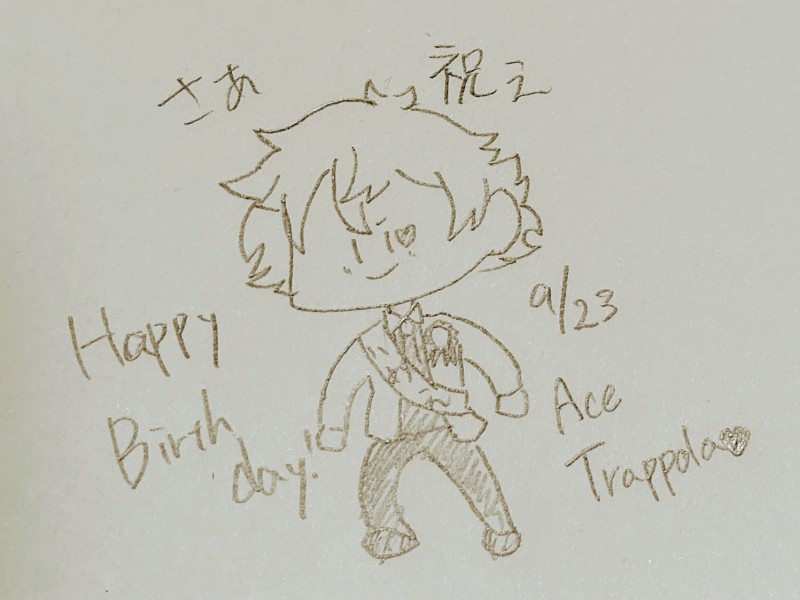 さあ 祝え
Happy
Birth
day!
9/23
Ace
Trappola♥